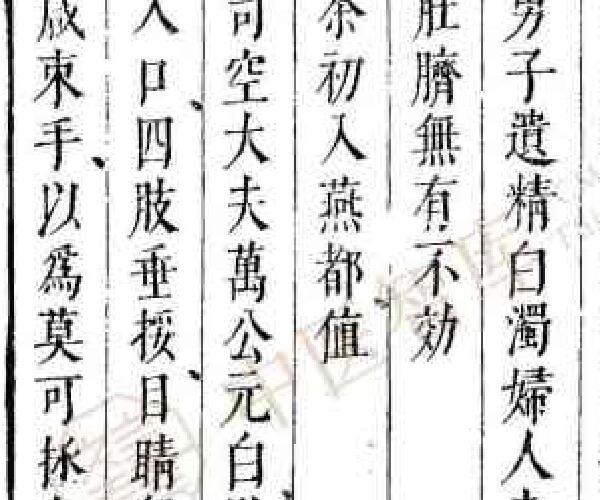 男子遺精白濁婦人
肚臍無有不効
余初入燕都值
司空大夫萬公元白
入口四肢垂挼目睛
咸束手以為莫可拯